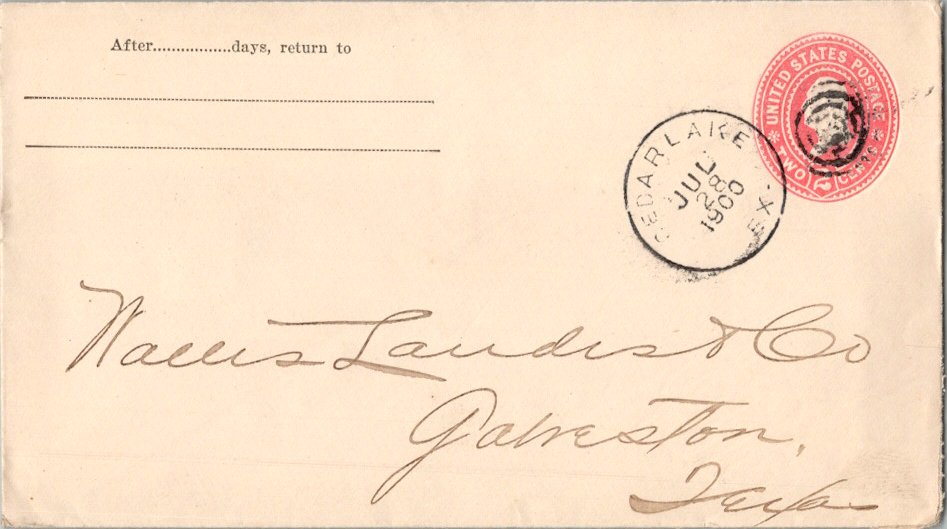 After.................days, return to
UNITED STATES POSTAGE
TWO 2 CENTS
CEDARLAKE
JUL
28
1900
TEX.
Wallis Landes & Co
Galveston,
Texas